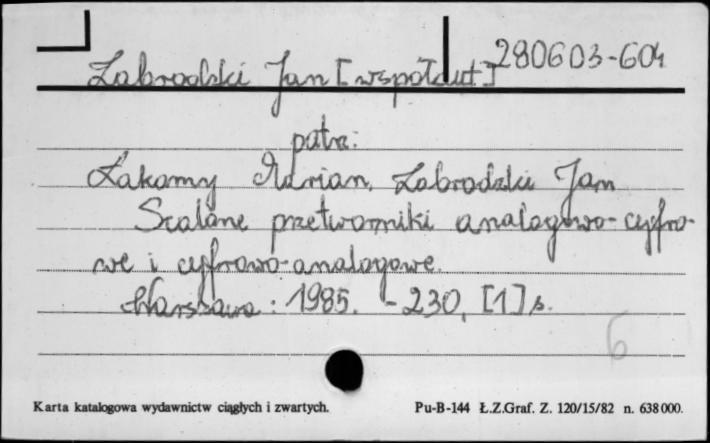 Zabrodzki Jan [współaut] 280603-604
patrz:
Łakomy Adrian, Zabrodzki Jan
Scalone przetworniki analogowo-cyfro-
we i cyfrowo-analogowe.
Warszawa: 1985. - 230, [1] s.
6
Karta katalogowa wydawnictw ciągłych i zwartych. Pu-B-144 Ł.Z.Graf. Z. 120/15/82 n. 638000.